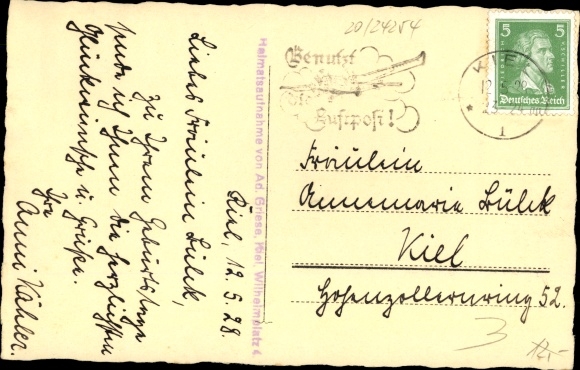 20/24254
Kiel, 12. 5. 28.
Liebes Fräulein Bülck,
Zu Ihrem Geburtstage
sende ich Ihnen die herzlichsten
Glückwünsche u. Grüße.
Ihre
Anni Kähler.
Heimatsaufnahme von Ad. Griese, Kiel, Wilhelmplatz 4
Benutzt
die
Luftpost!
KIEL
12. 5. 28
1
5 5
Deutsches Reich
Fräulein
Annemarie Bülck
Kiel
Hohenzollernring 52.
3